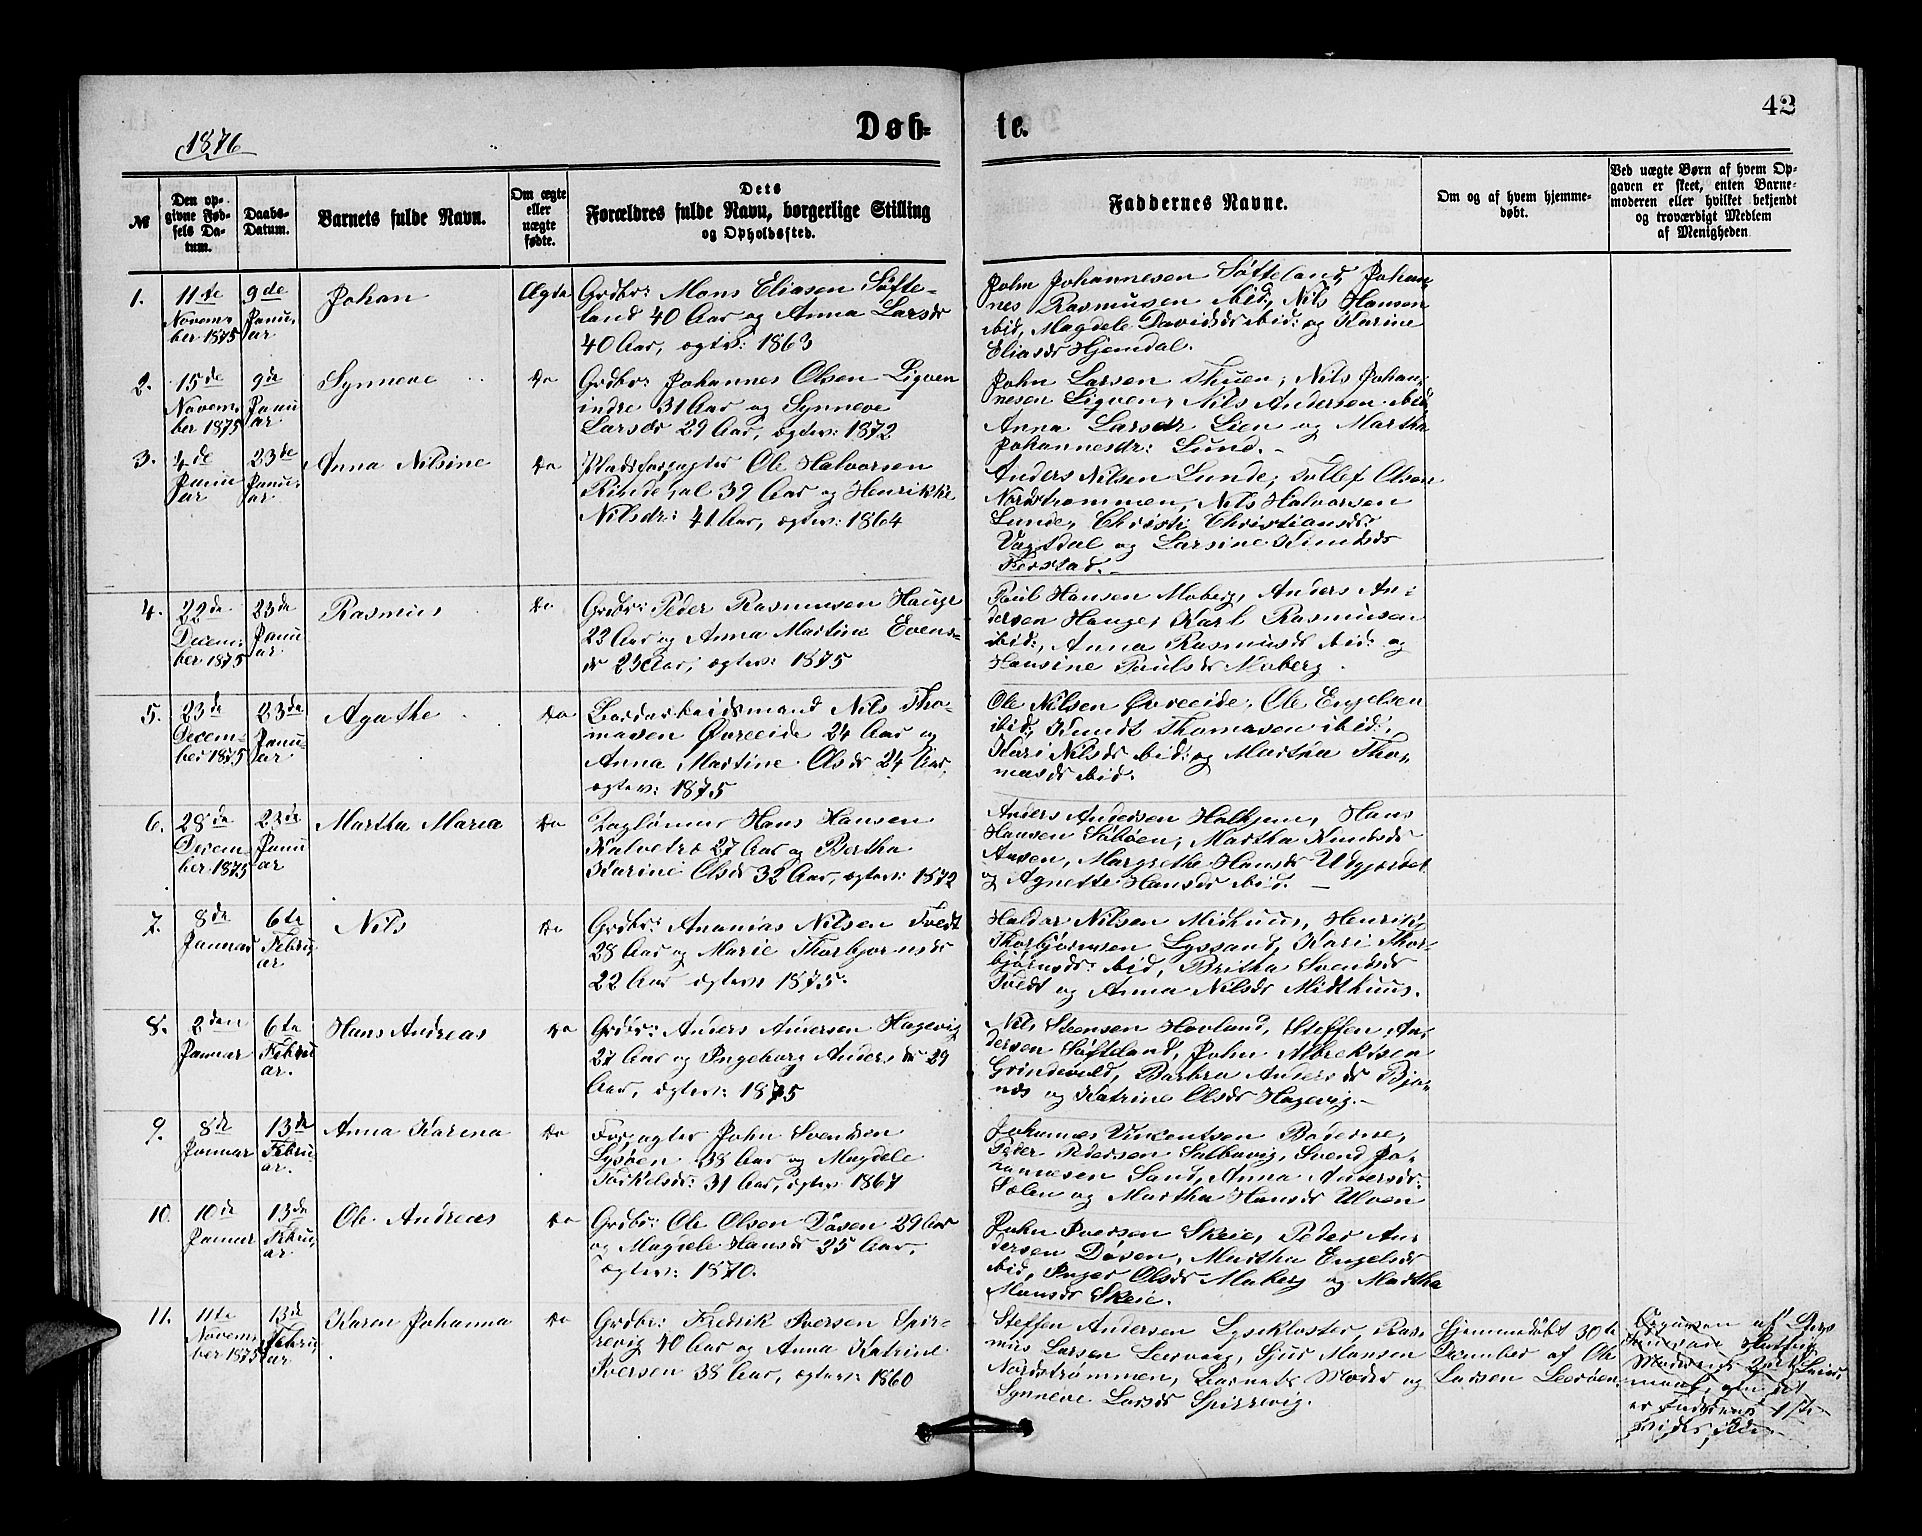 42
1876
Døb-
te.
№
Den op-
givne Fød-
sels Da-
tum.
Daabs-
Datum.
Barnets fulde Navn.
Om ægte
eller
uægte
fødte.
Dets
Forældres fulde Navn, borgerlige Stilling
og Opholdssted.
Faddernes Navne.
Om og af hvem hjemme-
døbt.
Ved uægte Børn af hvem Op-
gaven er skeet, enten Barne-
moderen eller hvilket bekjendt
og troværdigt Medlem
af Menigheden
1.
11te
Novem-
ber 1875
9de
Janu-
ar
Johan
Ægte
Grdbr: Mons Eliasen Søfte-
land 40 Aar og Anna Larsdr
40 Aar, ægtev: 1863
John Johannesen Søfteland, Johan-
nes Rasmusen ibid, Nils Hansen
ibid, Magdele Davidsdr ibid: og Karine
Eliasdr Hjemdal.
2.
15de
Novem-
ber 1875
9de
Janu-
ar
Synneve
Do
Grdbr: Johannes Olsen Ligven
indre 31 Aar og Synneve
Larsdr 29 Aar, ægtev: 1872
John Larsen Thuen, Nils Johan-
nesen Ligven, Nils Andersen ibid,
Anna Larsdr Lien og Martha
Johannesdr: Lund.-
3.
4de
Janu-
ar
23de
Janu-
ar
Anna Nilsine
Do
Pladsforpagter Ole Halvorsen
39 Aar og Henrikke
Nilsdr: 41 Aar, ægtev: 1864
Anders Nilsen Lunde, Tollef Olsen
Nordstrømmen, Nils Halvorsen
Lunde, Christi Christiansdr
og Larsine Knudsdr
4.
22de
Decem-
ber 1875
23de
Janu-
ar
Rasmus
Do
Grdbr: Peder Rasmusen Hauge
23 Aar og Anna Martine Evens-
dr 23 Aar, ægtev: 1875
Paul Hansen Moberg, Anders An-
dersen Hauge, Karl Rasmusen
ibid:, Anna Rasmusdr ibid: og
Hansine Paulsdr Moberg.
5.
23de
Decem-
ber 1875
23de
Janu-
ar
Agathe
Do
Jordarbeidsmand Nils Tho-
masen Øvreeide 24 Aar og
Anna Martine Olsdr 24 Aar,
ægtev: 1875
Ole Nilsen Øvreeide, Ole Engelsen
ibid, Knudt Thomasen ibid:,
Kari Nilsdr ibid: og Martha Tho-
masdr ibid.
6.
28de
Decem-
ber 1875
23de
Janu-
ar
Martha Maria
Do
Daglønner Hans Hansen
Kalvetræ 27 Aar og Bertha
Karine Olsdr 32 Aar, ægtev: 1872
Anders Andersen Halhjem, Hans
Hansen Søbøen, Martha Knudsdr
Aasen, Margrethe Hansdr Udgjerdet
og Agnette Hansdr ibid. —
7.
8de
Januar
6te
Febru-
ar
Nils
Do
Grdbr: Ananias Nilsen Tvedt
28 Aar og Marie Thorbjørnsdr
22 Aar ægtev: 1875.
Haldor Nilsen Midhuus, Henrik
Thorbjørnsen Lyssand, Kari Thor-
bjørnsdr: ibid, Britha Svendsdr
Tvedt og Anna Nilsdr Midthuus.
8.
2den
Januar
6te
Febru-
ar.
Hans Andreas
Do
Grdbr: Anders Andersen Hagevig
27 Aar og Ingeborg Andersdr 29
Aar, ægtev: 1875
Nils Steensen Hovland, Steffen An-
dersen Søfteland, John Albrektsen
Grindevold, Barbra Andersdr Bjø-
næs og Katrine Olsdr Hagevig.-
9.
8de
Januar
13de
Febru-
ar.
Anna Karena
Do
Forpagter John Svendsen
Lysøen 38 Aar og Magdele
Torkelsdr: 31 Aar, ægtev 1867
Johannes Vincentsen
Peder Pedersen Salbuvig, Svend Jo-
hannesen Sand, Anna Andersdr.
og Martha Hansdr Ulven
10.
10de
Januar
13de
Febru-
ar
Ole Andreas
Do
Grdbr: Ole Olsen Døsen 29 Aar
og Magdele Hansdr 25 Aar,
ægtev: 1870.
John Iversen Skeie, Peder An-
dersen Døsen, Martha Engelsdr
ibid, Inger Olsdr Moberg og Martha
Monsdr Skeie.
11.
11te
Novem-
ber 1875
13de
Febru-
ar
Karen Johanna
Do
Grdbr: Fredrik Iversen Spir-
revig 40 Aar og Anna Katrine
Iversen 38 Aar, ægtev: 1860
Steffen Andersen Lysekloster, Ras-
mus Larsen Leervaag, Sjur Mansen
Nordstrømmen, Barnets Moder og
Synneve Larsdr Spirrevig.
Hjemmedøbt 30te
December af Ole
Larsen Leerøen.